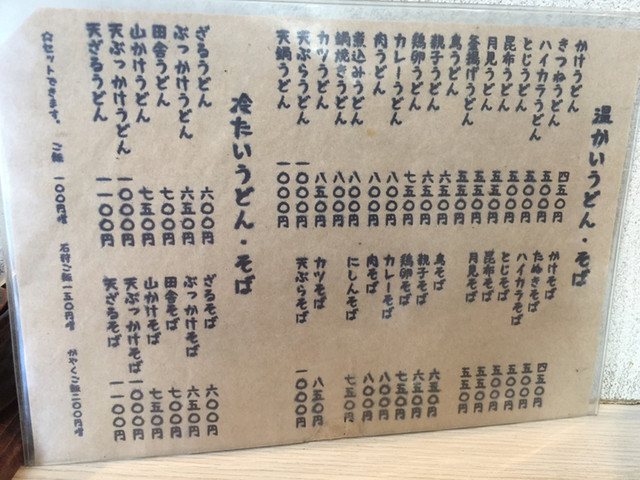 温かいうどん・そば
かけうどん 四五〇円
きつねうどん 五〇〇円
ハイカラうどん 五〇〇円
とじうどん 五〇〇円
昆布うどん 五五〇円
月見うどん 五五〇円
釜揚げうどん 五五〇円
鳥うどん 六五〇円
親子うどん 六五〇円
鶏卵うどん 七五〇円
カレーうどん 八〇〇円
肉うどん 八〇〇円
煮込みうどん 八〇〇円
鍋焼きうどん 八〇〇円
カツうどん 八五〇円
天ぷらうどん 一〇〇〇円
天鍋うどん 一〇〇〇円
かけそば 四五〇円
たぬきそば 五〇〇円
ハイカラそば 五〇〇円
とじそば 五〇〇円
昆布そば 五五〇円
月見そば 五五〇円
鳥そば 六五〇円
親子そば 六五〇円
鶏卵そば 七五〇円
カレーそば 八〇〇円
肉そば 八〇〇円
にしんそば 七五〇円
カツそば 八五〇円
天ぷらそば 一〇〇〇円
冷たいうどん・そば
ざるうどん 六〇〇円
ぶっかけうどん 六五〇円
田舎うどん 七〇〇円
山かけうどん 七五〇円
天ぶっかけうどん 一〇〇〇円
天ざるうどん 一一〇〇円
ざるそば 六〇〇円
ぶっかけそば 六五〇円
田舎そば 七〇〇円
山かけそば 七五〇円
天ぶっかけそば 一〇〇〇円
天ざるそば 一一〇〇円
☆セットできます。 ご飯 一〇〇円増 石狩ご飯一五〇円増 かやくご飯二〇〇円増